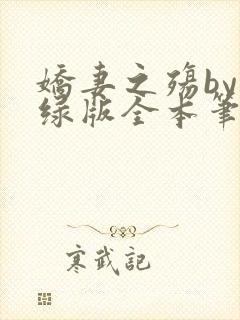 嬌妻之殤by
绿版全本筆
寒武記